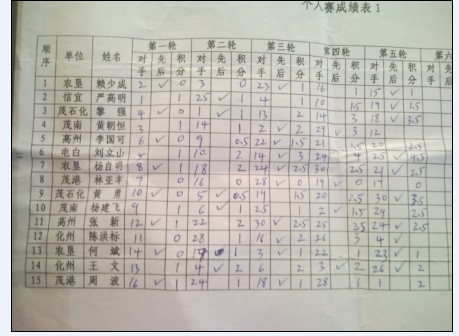 个人赛成绩表 1
顺序 单位 姓名 第一轮 第二轮 第三轮 第四轮 第五轮 第六
对手 先后 积分 对手 先后 积分 对手 先后 积分 对手 先后 积分 对手 先后 积分 对手
1 农垦 赖少成 2 ✓ 0 3 0 23 ✓ 1 16 1 15 ✓ 1
2 信宜 严高明 1 1 25 ✓ 1 4 1 10
3 茂石化 黎强 4 ✓ 0 1 ✓ 1 13 2 14 3 18 ✓ 3.5
4 茂南 黄朝恒 3 1 14 1 2 ✓ 2 29 ✓ 3 12
5 高州 李国可 6 0 9 0.5 22 ✓ 1.5 21
6 电白 刘立山 ✓ 1 10 2 14 ✓ 3 24 4 25 ✓
7 农垦 杨自羽 8 ✓ 1 18 2 24 ✓ 2.5 30 21 ✓ 2.5
8 茂港 林亚丰 7 0 16 0 28 ✓ 0 19 ✓ 0 17 0
9 茂石化 黄勇 10 ✓ 0 5 ✓ 0.5 19 1.5 20 30 ✓ 3.5
10 茂南 杨建飞 9 1 6 ✓ 1 25 1 2 24 2.5
11 高州 张新 12 ✓ 1 22 ✓ 2 30 ✓ 2.5 25 24 ✓ 2.5
12 化州 陈洪标 11 0 28 1 16 ✓ 2 26 3 4 ✓
13 农垦 何斌 14 ✓ 0 ✓ 1 3 ✓ 1 22 1 23 ✓ 1
14 化州 王文 13 1 4 ✓ 2 6 2 3 ✓ 2 26 ✓ 2
15 茂港 周波 16 ✓ 1 24 1 18 ✓ 1 28 1 1 2